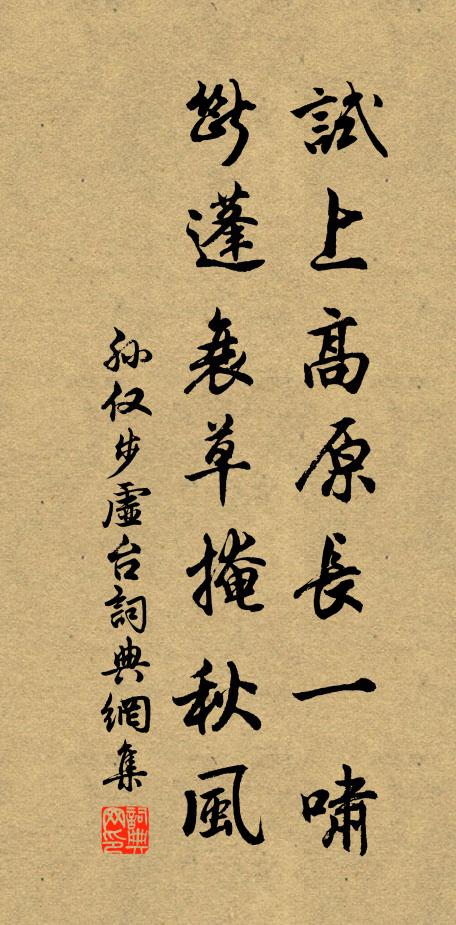 試上高原長一嘯
斷蓬衰草掩秋風
孙仅步虛台詞典網集
詞典网印